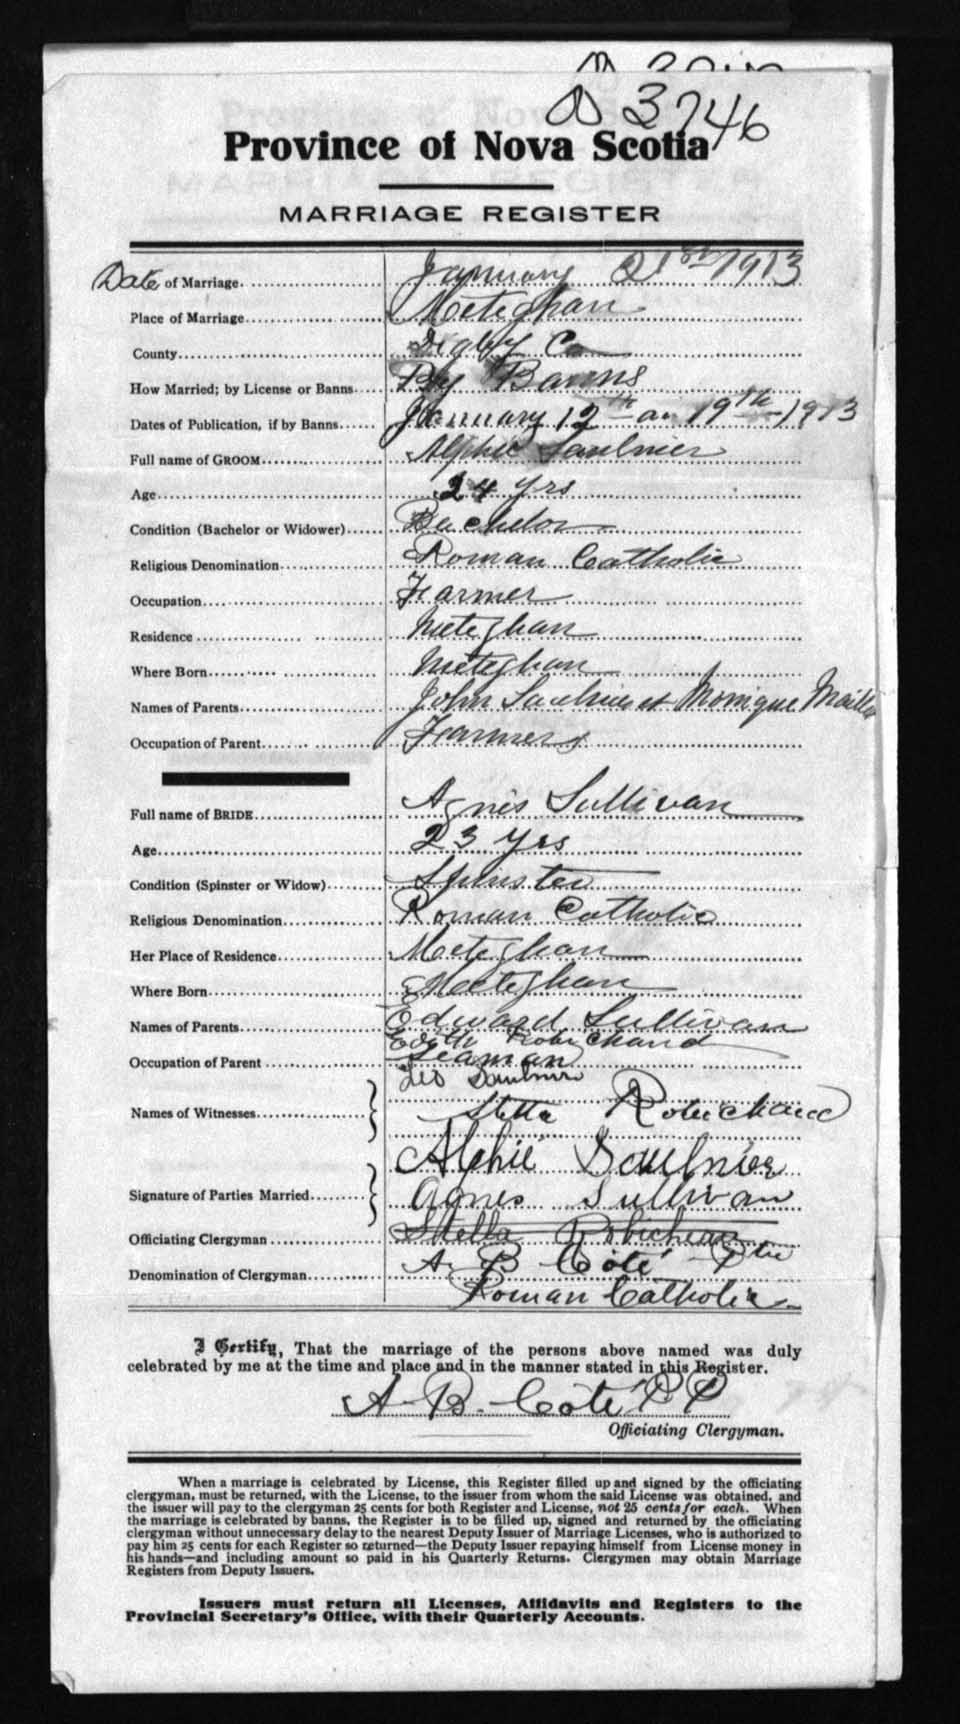 3746
Province of Nova Scotia
MARRIAGE REGISTER
Date of Marriage January 21st 1913
Place of Marriage Meteghan
County Digby Co
How Married; by License or Banns By Banns
Dates of Publication, if by Banns January 12th an 19th 1913
Full name of GROOM Alphie Saulnier
Age 24 yrs
Condition (Bachelor or Widower) Bachelor
Religious Denomination Roman Catholic
Occupation Farmer
Residence Meteghan
Where Born Meteghan
Names of Parents John Saulnier et Monique Maillet
Occupation of Parent Farmers
Full name of BRIDE Agnes Sullivan
Age 23 yrs
Condition (Spinster or Widow) Spinster
Religious Denomination Roman Catholic
Her Place of Residence Meteghan
Where Born Meteghan
Names of Parents Edward Sullivan
Edith Robichaud
Occupation of Parent Seaman
Leo Saulnier
Names of Witnesses Stella Robichaud
Alphie Saulnier
Signature of Parties Married Agnes Sullivan
Officiating Clergyman Stella Robicheau
A B Côté
Denomination of Clergyman Roman Catholic
I Certify, That the marriage of the persons above named was duly
celebrated by me at the time and place and in the manner stated in this Register.
A. B. Côté P P
Officiating Clergyman.
When a marriage is celebrated by License, this Register filled up and signed by the officiating
clergyman, must be returned, with the License, to the issuer from whom the said License was obtained, and
the issuer will pay to the clergyman 25 cents for both Register and License, not 25 cents for each. When
the marriage is celebrated by banns, the Register is to be filled up, signed and returned by the officiating
clergyman without unnecessary delay to the nearest Deputy Issuer of Marriage Licenses, who is authorized to
pay him 25 cents for each Register so returned—the Deputy Issuer repaying himself from License money in
his hands—and including amount so paid in his Quarterly Returns. Clergymen may obtain Marriage
Registers from Deputy Issuers.
Issuers must return all Licenses, Affidavits and Registers to the
Provincial Secretary's Office, with their Quarterly Accounts.